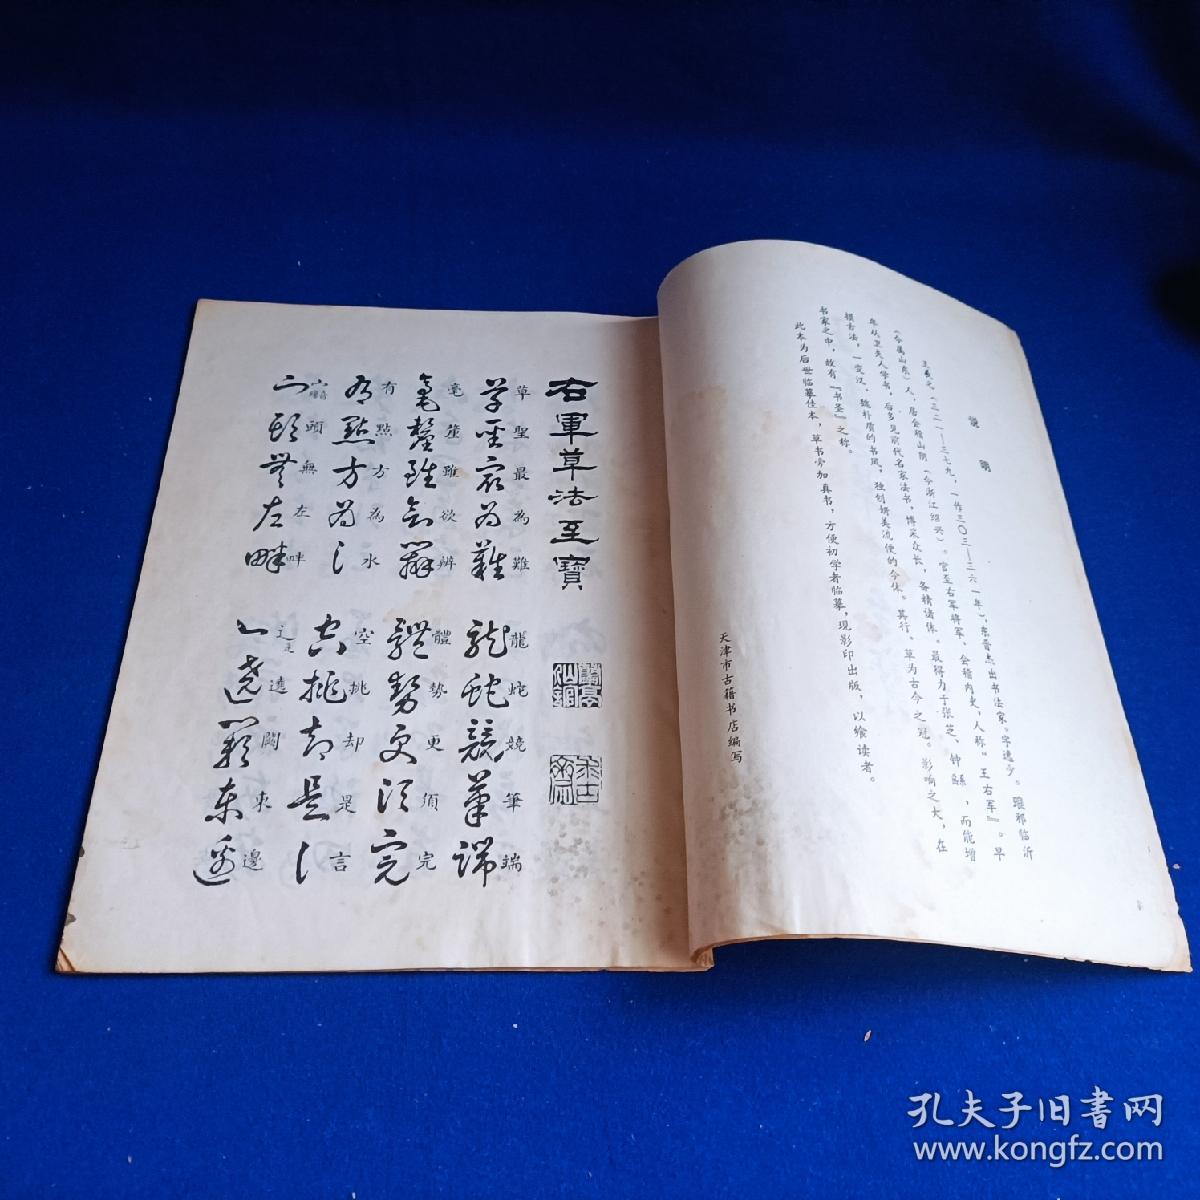 说明
王羲之（三二一—三七九，一作三〇三—三六一年），东晋杰出书法家。字逸少。琅邪临沂
（今属山东）人，居会稽山阴（今浙江绍兴）。官至右军将军，会稽内史，人称"王右军』。早
年从卫夫人学书，后多见前代名家法书，博采众长，备精诸体。最得力于张芝、钟繇，而能增
损古法，一变汉、魏朴质的书风，独创妍美流便的今体。其行、草为古今之冠。影响之大，在
书家之中，故有『书圣』之称。
此本为后世临摹佳本，草书旁加真书，方便初学者临摹，现影印出版，以飨读者。
天津市古籍书店编写
右軍草法至寶
草聖最為難
龍蛇競筆端
毫釐雖欲辨
體勢更須完
有點方為水
空挑却是言
頭無左畔
遶闕東邊
孔夫子旧書网
www.kongfz.com